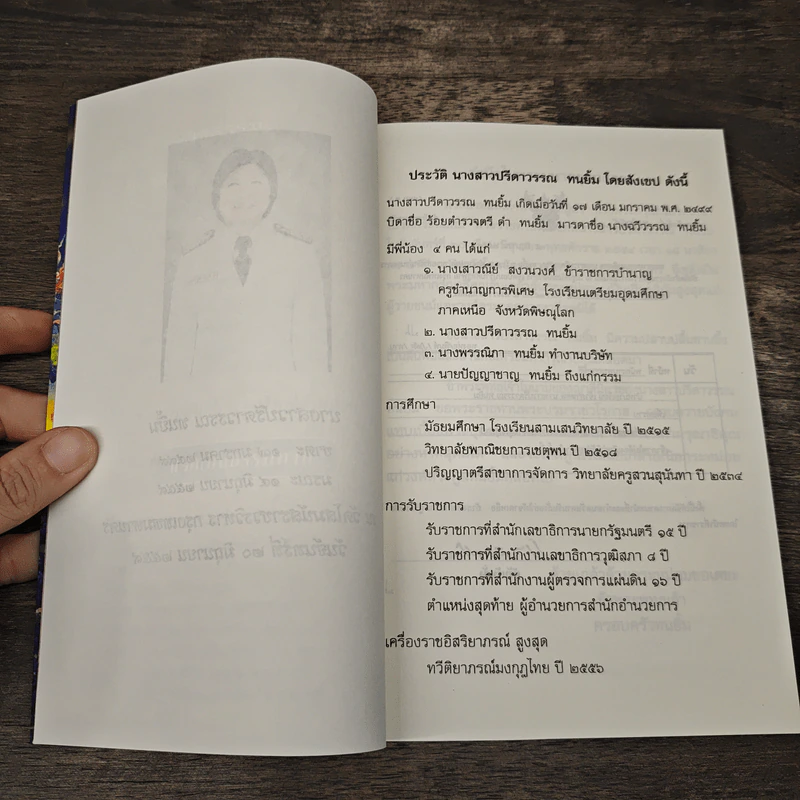 ประวัติ นางสาวปรีดาวรรณ ทนยิ้ม โดยสังเขป ดังนี้
นางสาวปรีดาวรรณ ทนยิ้ม เกิดเมื่อวันที่ ๑๗ เดือน มกราคม พ.ศ. ๒๔๙๙
บิดาชื่อ ร้อยตำรวจตรี ดำ ทนยิ้ม มารดาชื่อ นางฉวีวรรณ ทนยิ้ม
มีพี่น้อง ๔ คน ได้แก่
๑. นางเสาวณีย์ สงวนวงศ์ ข้าราชการบำนาญ
ครูชำนาญการพิเศษ โรงเรียนเตรียมอุดมศึกษา
ภาคเหนือ จังหวัดพิษณุโลก
๒. นางสาวปรีดาวรรณ ทนยิ้ม
๓. นางพรรณิภา ทนยิ้ม ทำงานบริษัท
๔. นายปัญญาชาญ ทนยิ้ม ถึงแก่กรรม
การศึกษา
มัธยมศึกษา โรงเรียนสามเสนวิทยาลัย ปี ๒๕๑๕
วิทยาลัยพาณิชยการเชตุพน ปี ๒๕๑๘
ปริญญาตรีสาขาการจัดการ วิทยาลัยครูสวนสุนันทา ปี ๒๕๓๔
การรับราชการ
รับราชการที่สำนักเลขาธิการนายกรัฐมนตรี ๑๕ ปี
รับราชการที่สำนักงานเลขาธิการวุฒิสภา ๘ ปี
รับราชการที่สำนักงานผู้ตรวจการแผ่นดิน ๑๖ ปี
ตำแหน่งสุดท้าย ผู้อำนวยการสำนักอำนวยการ
เครื่องราชอิสริยาภรณ์ สูงสุด
ทวีติยาภรณ์มงกุฎไทย ปี ๒๕๕๖